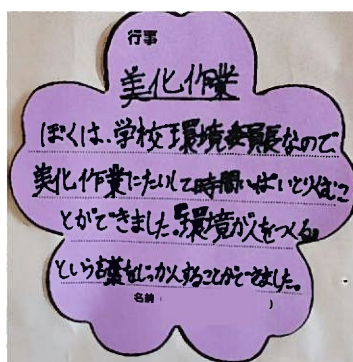 行事
美化作業
ぼくは、学校環境委員長なので
美化作業にたいして時間いっぱいとりくむこ
とができました。『環境が人をつくる』
という言葉をじっかんすることができました。
名前
)